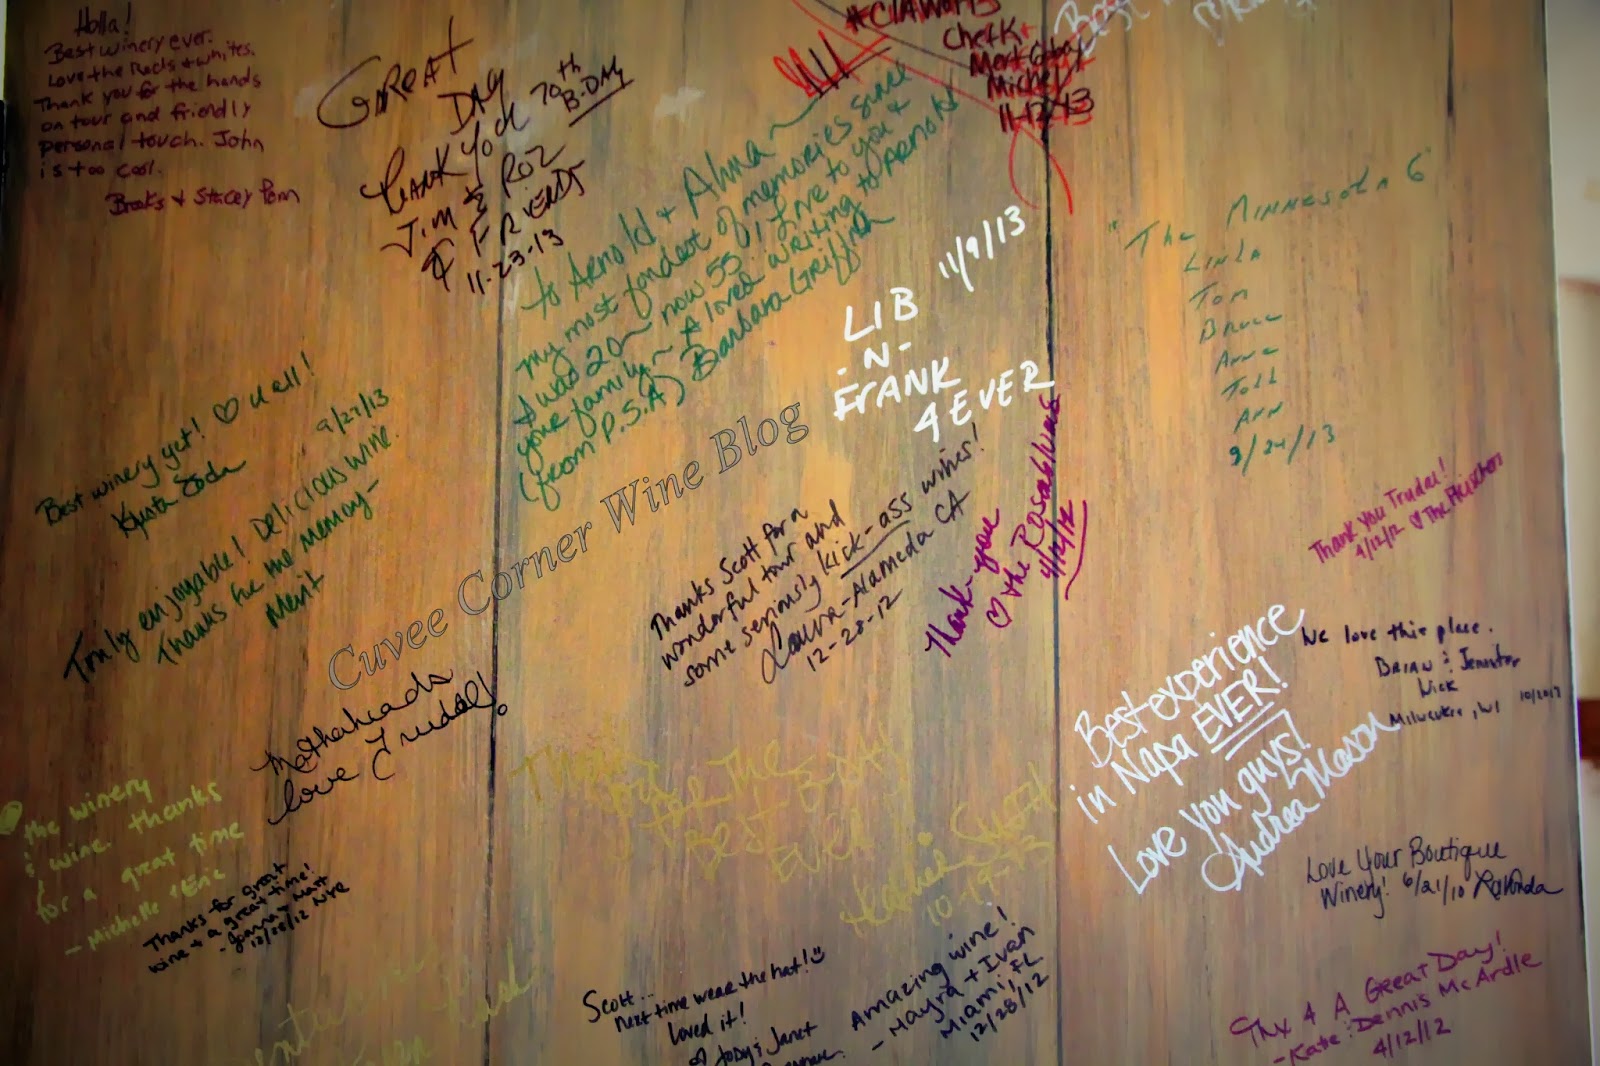 Holla!
Best winery ever.
Love the Reds & whites.
Thank you for the hands
on tour and friendly
personal touch. John
is too cool.
Brooks & Stacey
GREAT
DAY
THANK YOU 70th
B-DAY
JIM & ROZ
& FRIENDS
11-23-13
To Arnold & Alma
my most fondest of memories since
I was 20 ~ now 55, I love to you &
your family ~ A loved writing to Arnold
(from P.S.A) Barbara Griffith
#CIAWORKS
Chef K +
Michel
11-12-13
LIB 11/9/13
-N-
FRANK
4EVER
"The Minnesota 6"
Linda
Tom
Bruce
Anne
Todd
Ann
9/24/13
Best winery yet! ♡ u all!
9/27/13
Truly enjoyable! Delicious wine.
Thanks for the memory-
Merit
Cuvee Corner Wine Blog
Thanks Scott for a
wonderful tour and
some seriously kick-ass wines!
Laura - Alameda CA
12-28-12
Thank-you
♡ the Rosabluas
4/12/12
Thank you Trudal!
4/12/12 ♡ The
We love this place.
Brian & Jennifer
Wick
Milwaukee, WI 10/2013
Best experience
in Napa EVER!
Love you guys!
Andrea Mason
love Trudal!
the winery
& wine. thanks
for a great time
- Michelle & Eric
Thanks for great
wine & a great time!
- Joanna & Matt
12/28/12 NYE
Thank
you
for the
BEST B-DAY
EVER!
10-19-13
Love Your Boutique
Winery! 6/21/10 LaVonda
Scott...
next time wear the hat! ☺
Loved it!
Jody & Janet
Amazing wine!
- Mayra + Ivan
Miami, FL
12/28/12
Thx 4 A Great Day!
- Kate & Dennis McArdle
4/12/12